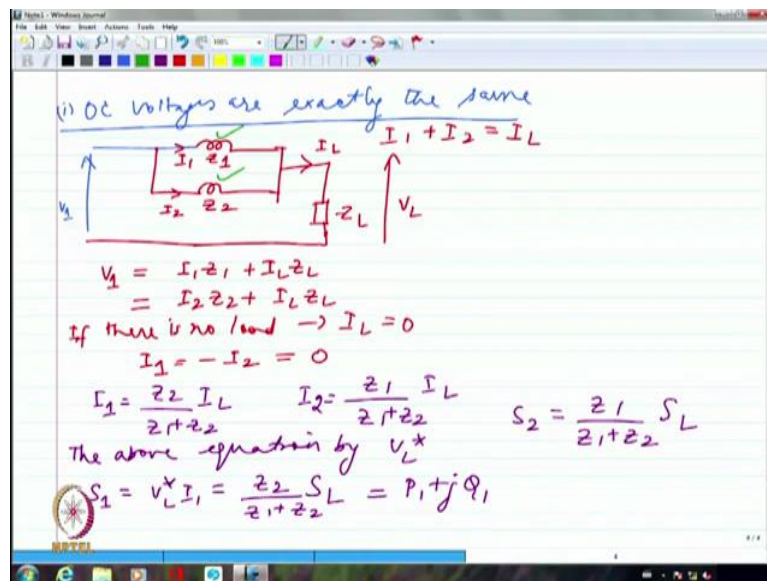 Note1 - Windows Journal
File Edit View Insert Actions Tools Help
100%
B I
(i) OC voltages are exactly the same
I1 + I2 = IL
I1 Z1 IL
I2 Z2
V1 ZL VL
V1 = I1Z1 + ILZL
= I2Z2 + ILZL
If there is no load → IL = 0
I1 = - I2 = 0
I1 = Z2/(Z1+Z2) IL I2 = Z1/(Z1+Z2) IL S2 = Z1/(Z1+Z2) SL
The above equation by VL*
S1 = VL* I1 = Z2/(Z1+Z2) SL = P1 + jQ1
NPTEL
4/4
4